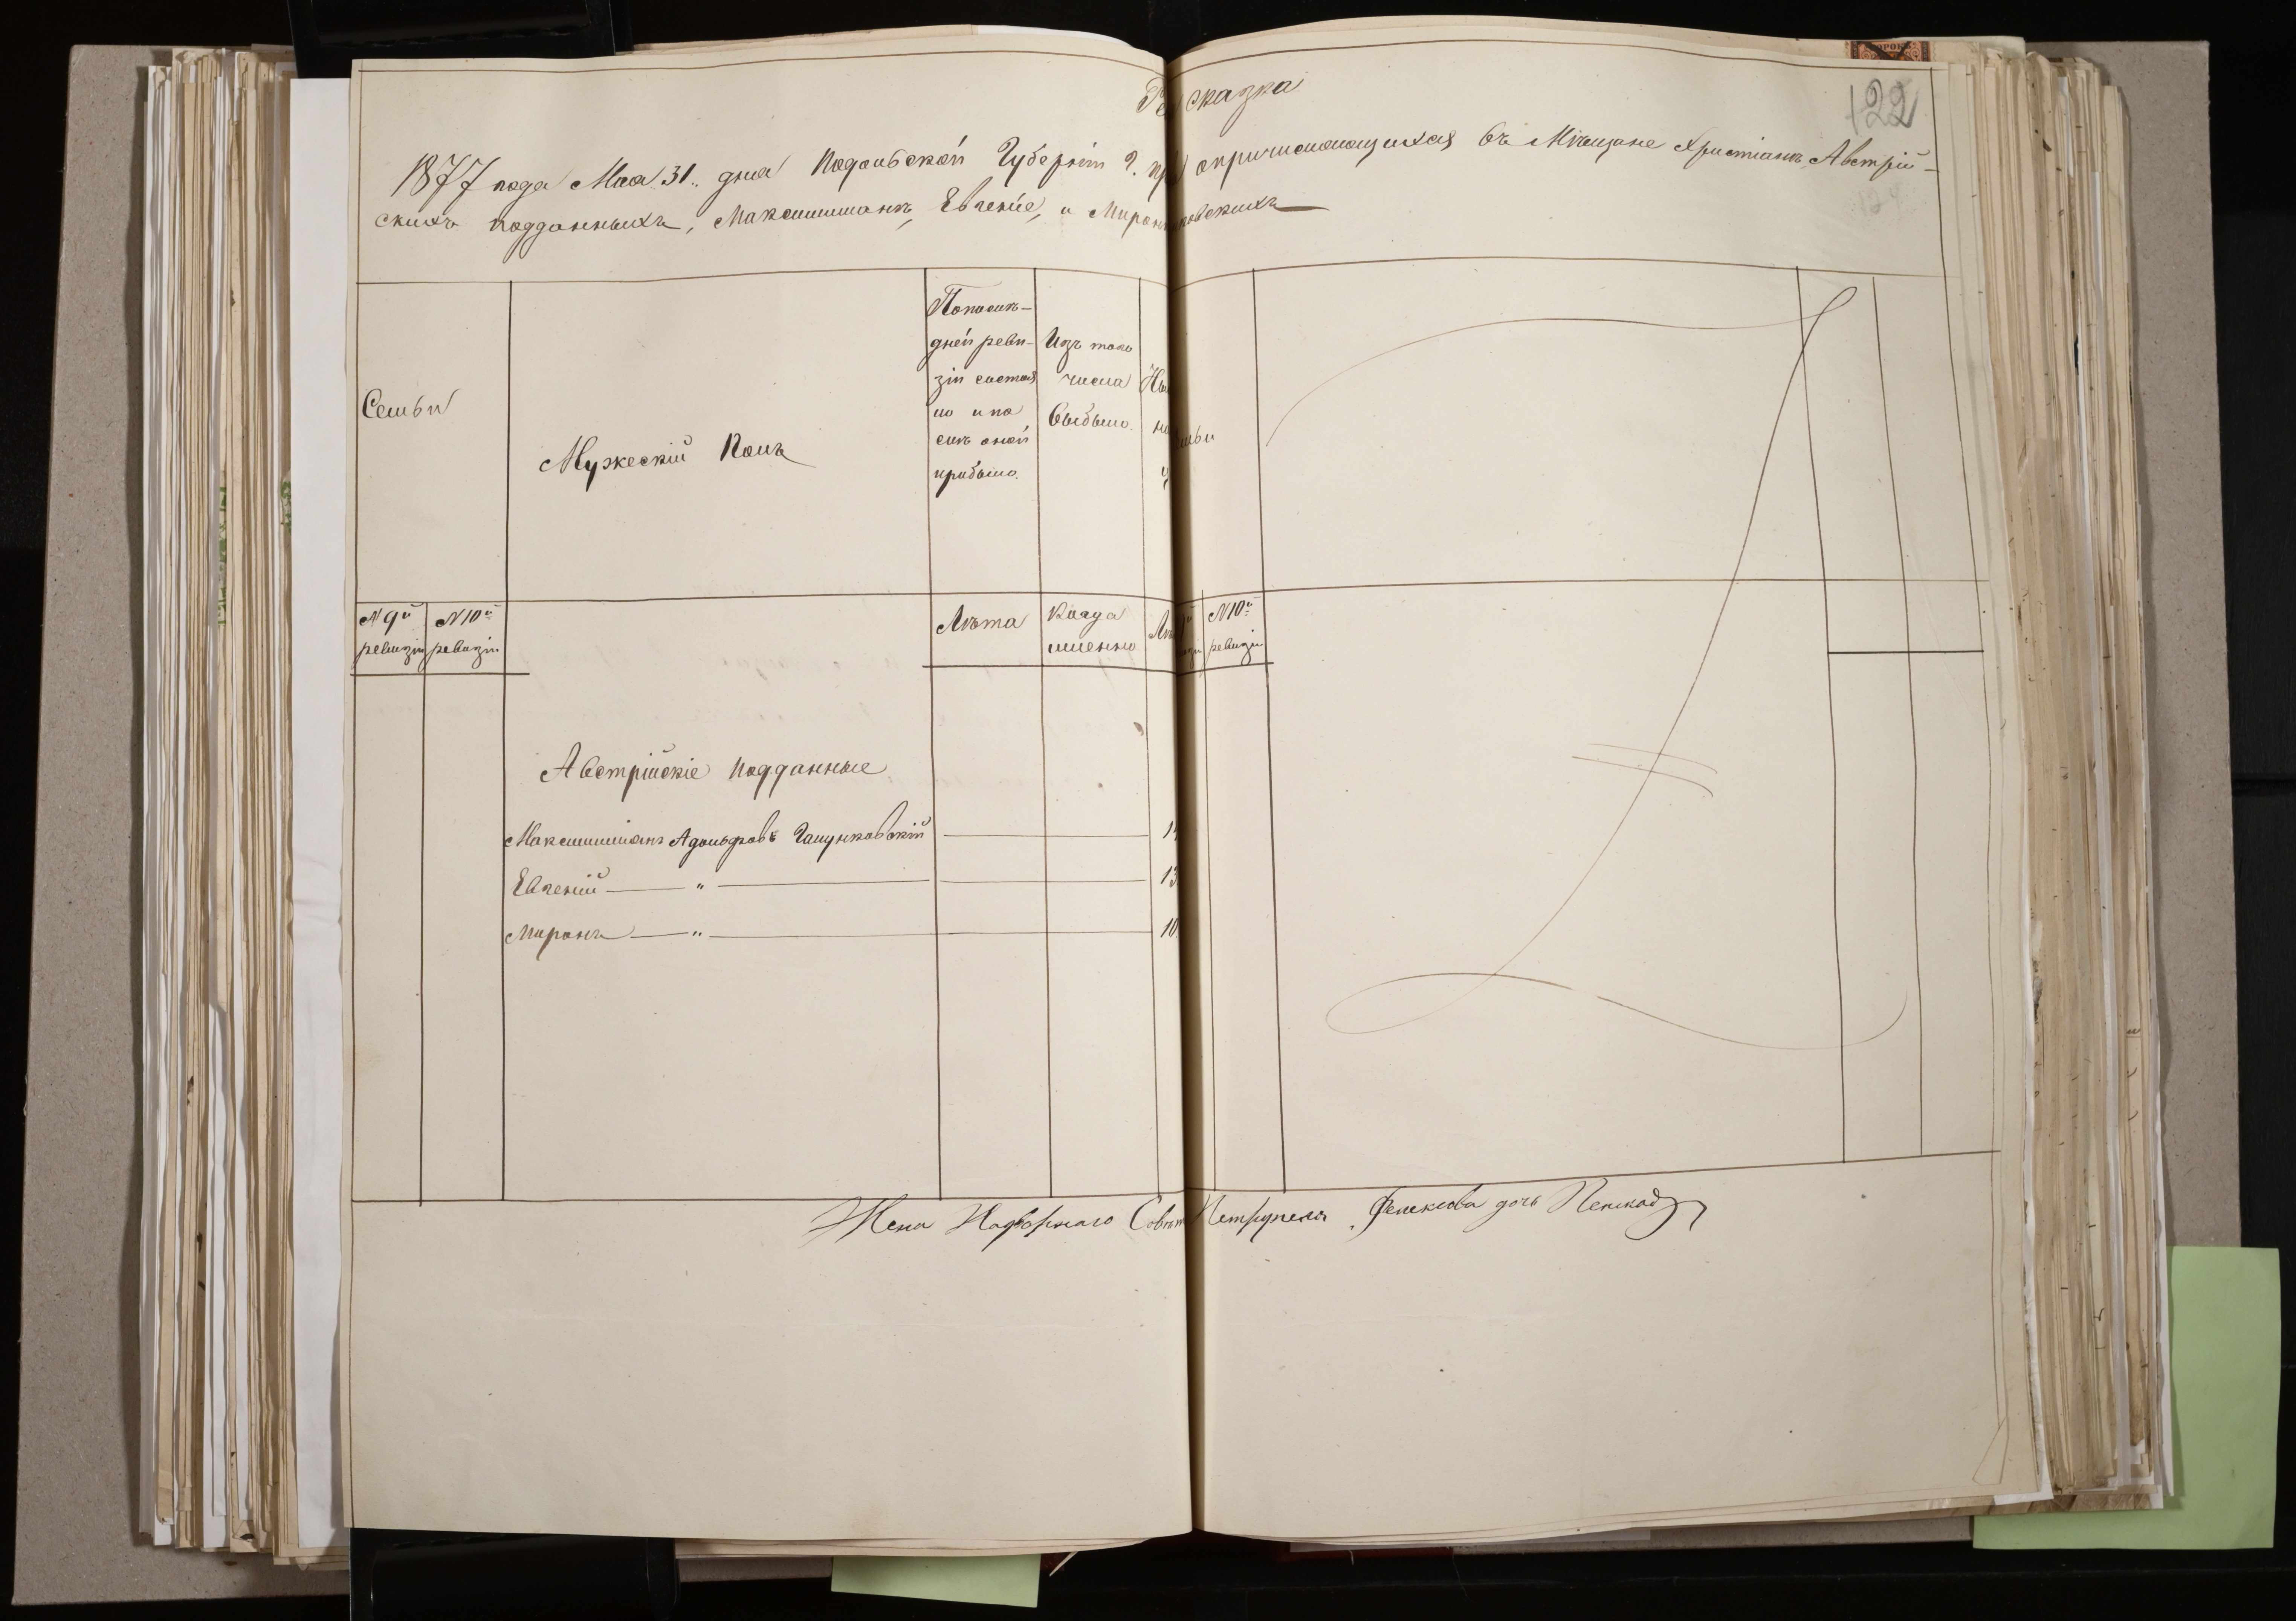 сказка
122
1877 года Мая 31. дня Подольской Губерніи Г. опричисляющихся въ Мѣщане Христіанъ Австрій-
скихъ подданныхъ, Максимиліанъ, Евгеніе, и Миронъ
Семьи
Мужескій Полъ
По послѣ-
дней реви-
зіи состоя
ло и по
слѣ оной
прибыло.
Изъ того
числа
выбыло.
N 9й
ревизіи
N 10й
ревизіи
Лѣта
Когда
именно
N 10й
ревизіи
Австрійскіе подданные
Максимиліанъ Адольфовъ Галунковскій
Евгеній — " — 13
Миронъ — " — 10.
Жена Надворнаго Петрунеля Фелексова дочь